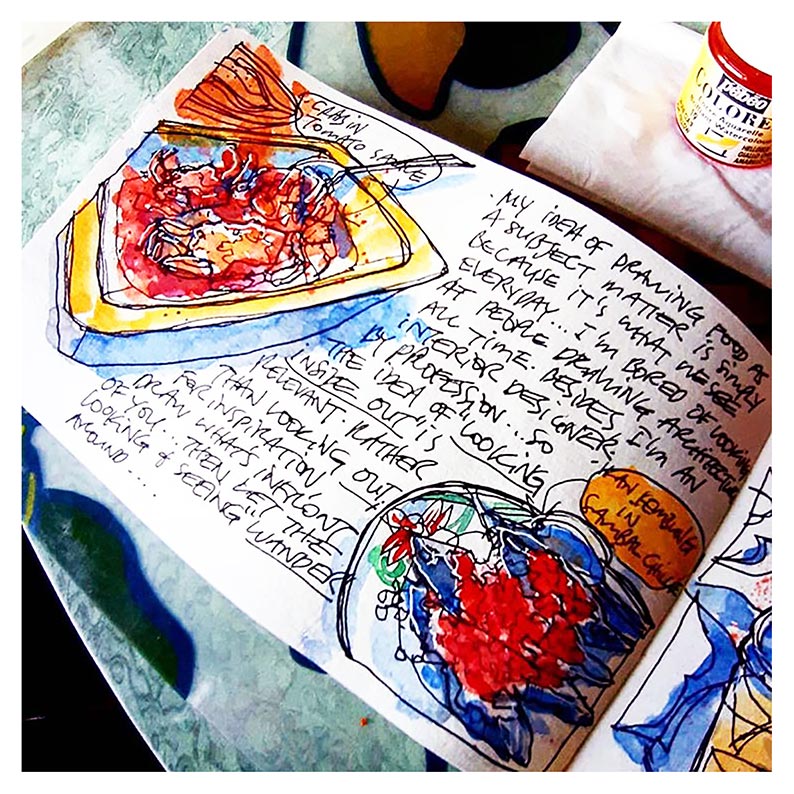 CRAB IN
TOMATO SAUCE
. MY IDEA OF DRAWING FOOD AS
A SUBJECT MATTER IS SIMPLY
BECAUSE IT'S WHAT WE SEE
EVERYDAY... I'M BORED OF LOOKING
AT PEOPLE DRAWING ARCHITECTURE
ALL TIME. BESIDES I'M AN
INTERIOR DESIGNER
BY PROFESSION... SO
THE IDEA OF "LOOKING
INSIDE OUT" IS
RELEVANT. RATHER
THAN LOOKING OUT
FOR INSPIRATION
DRAW WHATS INFRONT
OF YOU... THEN LET THE
LOOKING & SEEING "WANDER"
AROUND....
IKAN KEMBUNG
IN
SAMBAL CHILLI
pebeo
COLORE
Aquarelle
Watercolou